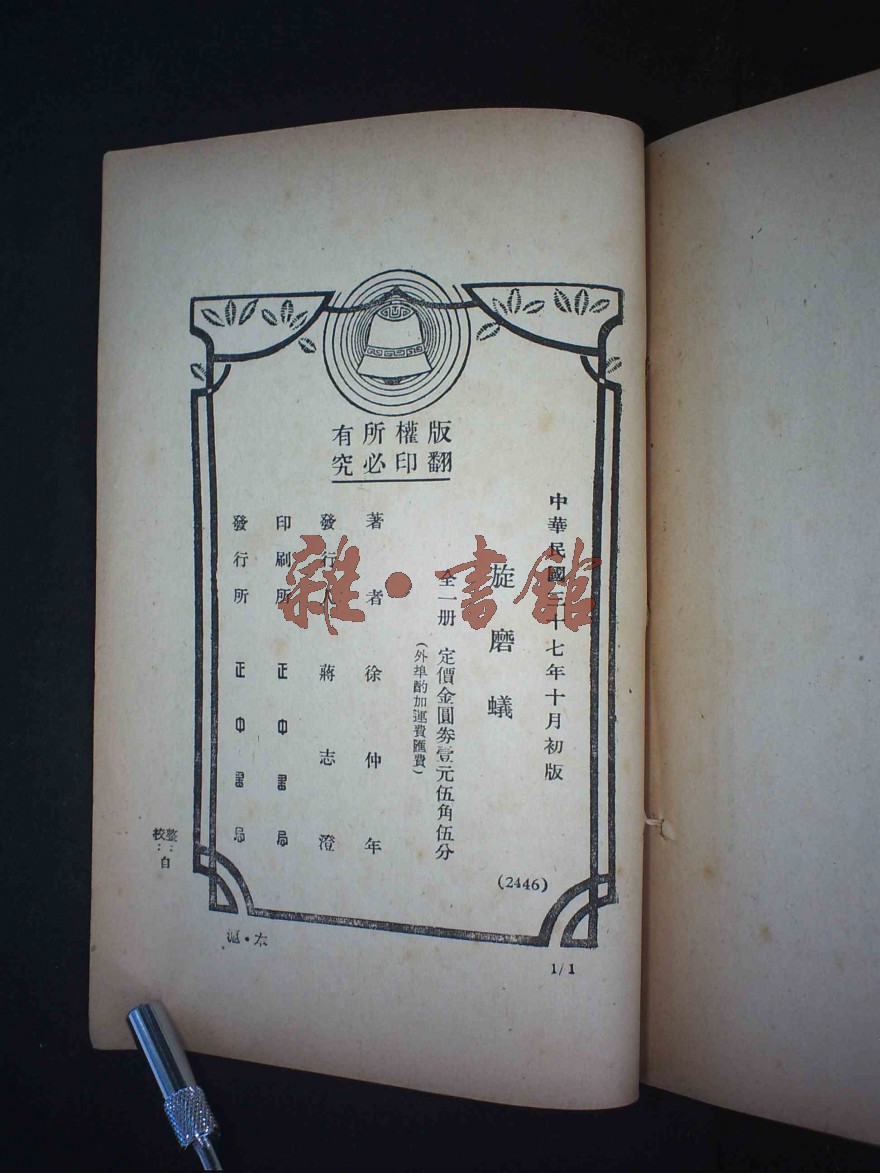 版權所有
翻印必究
中華民國三十七年十月初版
旋磨蟻
全一册 定價金圓券壹元伍角伍分
(外埠酌加運費匯費)
著者 徐仲年
發行人 蔣志澄
印刷所 正中書局
發行所 正中書局
(2446)
整:
校:自
滬·本
1/1
雜·書館